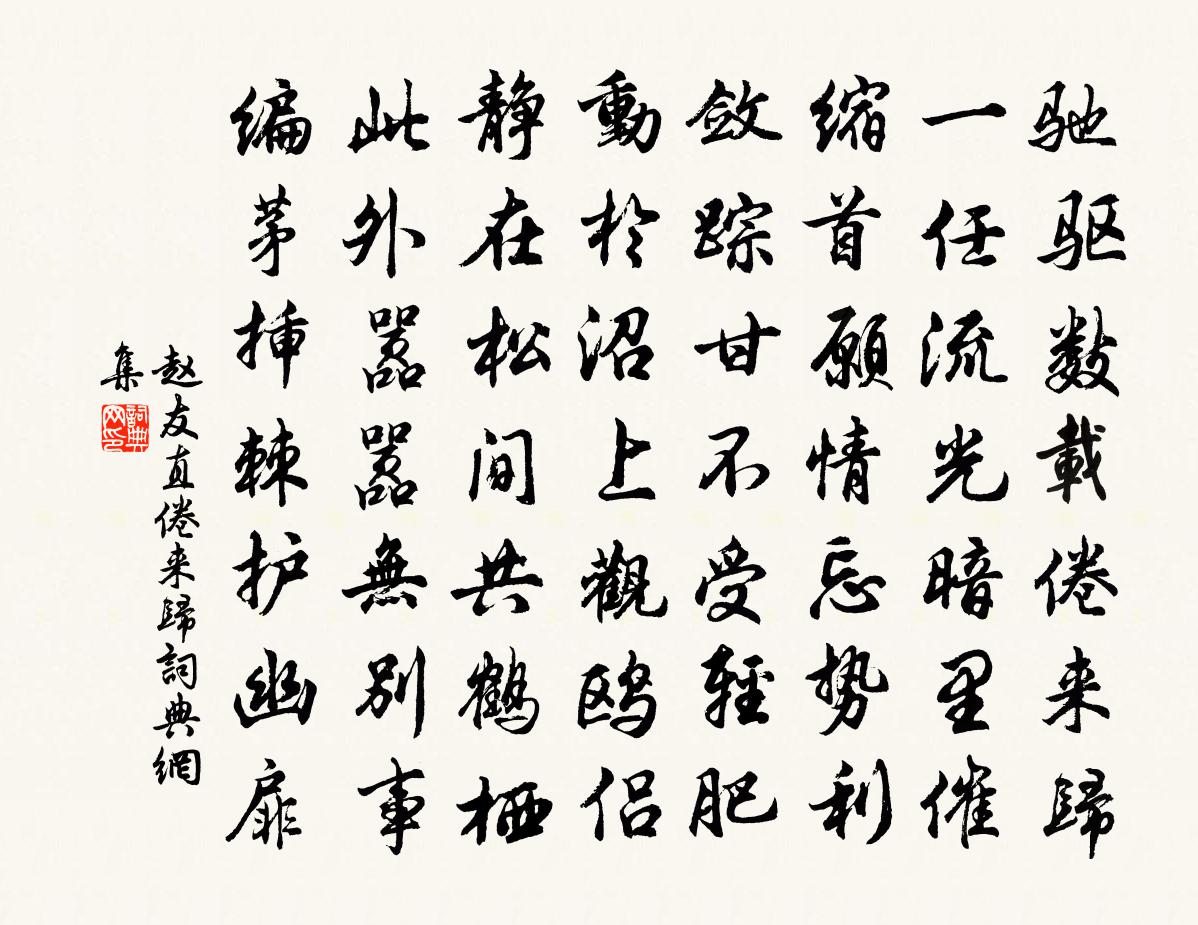 驰驱数載倦来歸
一任流光暗里催
缩首願情忘势利
敛踪甘不受輕肥
動於沼上觀鸥侣
静在松间共鹤栖
此外嚣嚣無别事
编茅挿棘护幽扉
赵友直倦来歸詞典網
集
詞典
网印